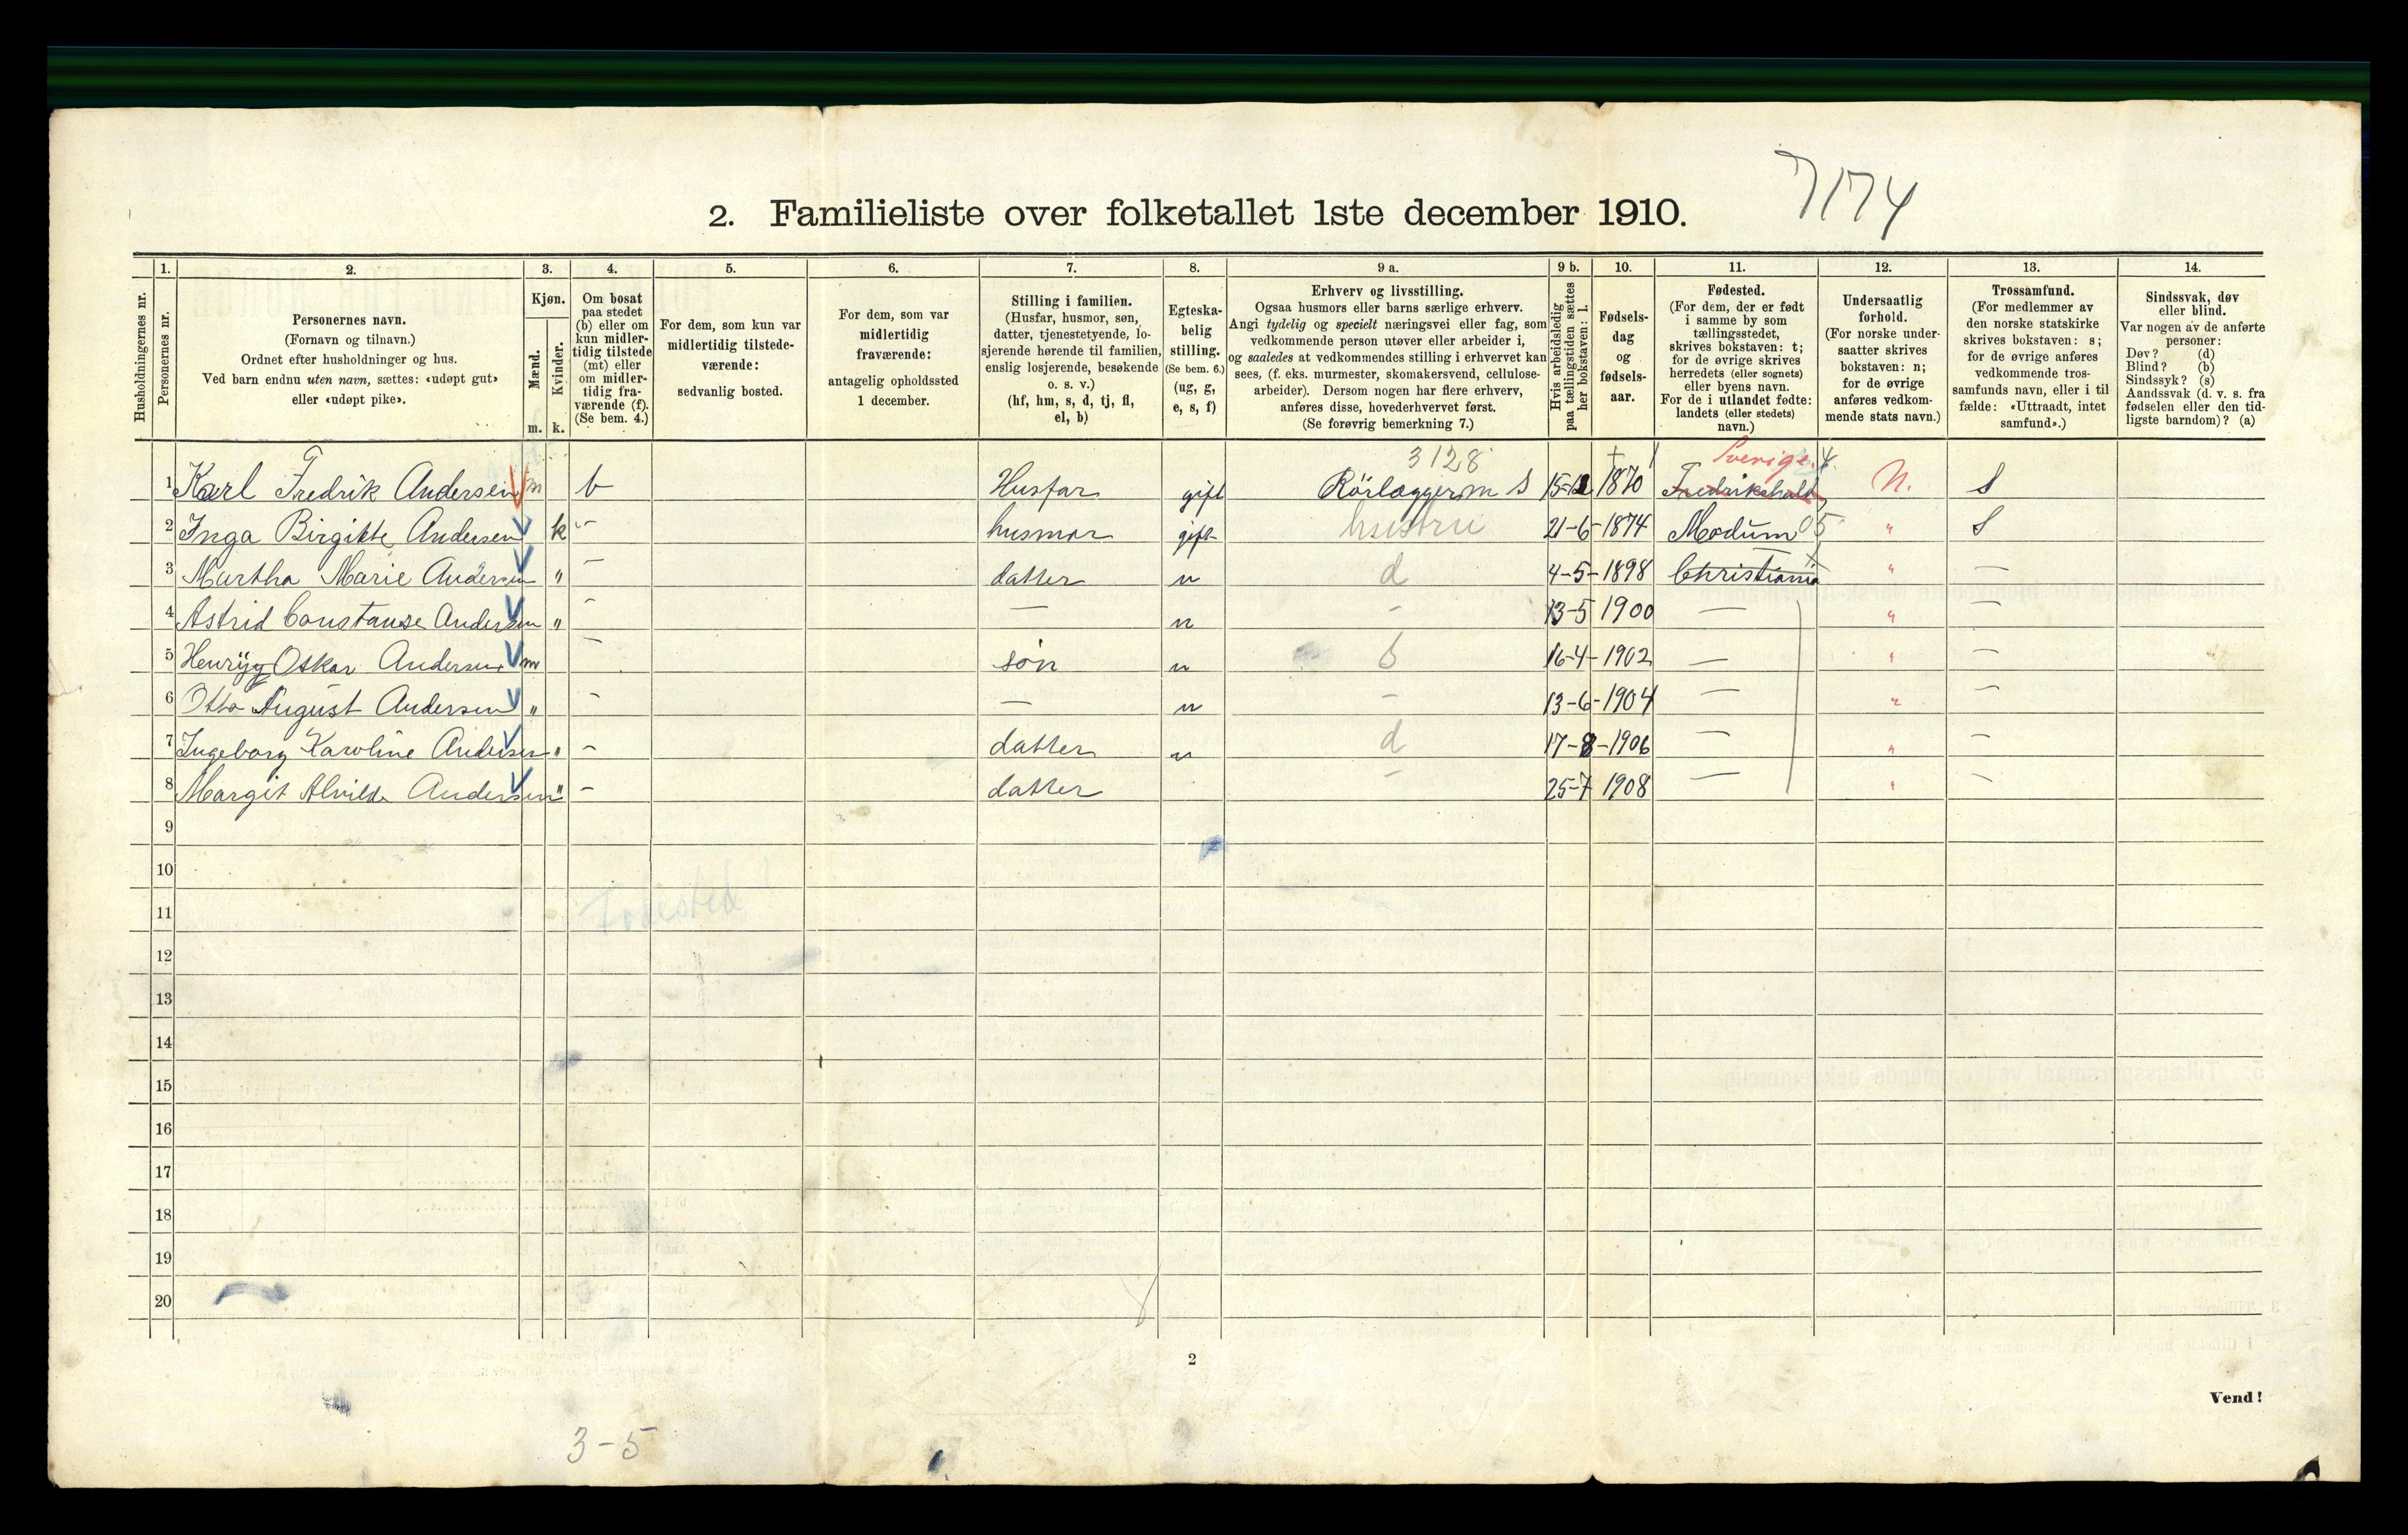 7174
2. Familieliste over folketallet 1ste december 1910.
Husholdningernes nr.
1.
Personernes nr.
2.
Personernes navn.
(Fornavn og tilnavn.)
Ordnet efter husholdninger og hus.
Ved barn endnu uten navn, sættes: «udøpt gut»
eller «udøpt pike».
3.
Kjøn.
Mænd.
Kvinder.
m. k.
4.
Om bosat
paa stedet
(b) eller om
kun midler-
tidig tilstede
(mt) eller
om midler-
tidig fra-
værende (f).
(Se bem. 4.)
5.
For dem, som kun var
midlertidig tilstede-
værende:
sedvanlig bosted.
6.
For dem, som var
midlertidig
fraværende:
antagelig opholdssted
1 december.
7.
Stilling i familien.
(Husfar, husmor, søn,
datter, tjenestetyende, lo-
sjerende hørende til familien,
enslig losjerende, besøkende
o. s. v.)
(hf, hm, s, d, tj, fl,
el, b)
8.
Egteska-
belig
stilling.
(Se bem. 6.)
(ug, g,
e, s, f)
9 a.
Erhverv og livsstilling.
Ogsaa husmors eller barns særlige erhverv.
Angi tydelig og specielt næringsvei eller fag, som
vedkommende person utøver eller arbeider i,
og saaledes at vedkommendes stilling i erhvervet kan
sees, (f. eks. murmester, skomakersvend, cellulose-
arbeider). Dersom nogen har flere erhverv,
anføres disse, hovederhvervet først.
(Se forøvrig bemerkning 7.)
9 b.
Hvis arbeidsledig
paa tællingstiden sættes
her bokstaven: l.
10.
Fødsels-
dag
og
fødsels-
aar.
11.
Fødested.
(For dem, der er født
i samme by som
tællingsstedet,
skrives bokstaven: t;
for de øvrige skrives
herredets (eller sognets)
eller byens navn.
For de i utlandet fødte:
landets (eller stedets)
navn.)
12.
Undersaatlig
forhold.
(For norske under-
saatter skrives
bokstaven: n;
for de øvrige
anføres vedkom-
mende stats navn.)
13.
Trossamfund.
(For medlemmer av
den norske statskirke
skrives bokstaven: s;
for de øvrige anføres
vedkommende tros-
samfunds navn, eller i til
fælde: «Uttraadt, intet
samfund».)
14.
Sindssvak, døv
eller blind.
Var nogen av de anførte
personer:
Døv? (d)
Blind? (b)
Sindssyk? (s)
Aandssvak (d. v. s. fra
fødselen eller den tid-
ligste barndom)? (a)
3128 Sverige. 4.
1 Karl Fredrik Andersen m b Husfar gift Rörlæggerm S 15-12 1870 Fredrikshald N. S
2 Inga Birgitte Andersen k - husmor gift hustru 21-6-1874 Modum 05 " S
3 Martha Marie Andersen " - datter u d 4-5-1898 Christiania " -
4 Astrid Constanse Andersen " - - u - 13-5 1900 - " -
5 Oskar Andersen m - søn u S 16-4-1902 - " -
6 Otto August Andersen " - - u - 13-6-1904 - " -
7 Ingeborg Karoline Andersen " - datter u d 17-8-1906 - " -
8 Margit Alvilde Andersen " - datter - 25-7 1908 - " -
9
10
11 Fødested
12
13
14
15
16
17
18
19
20
2
Vend!
3-5